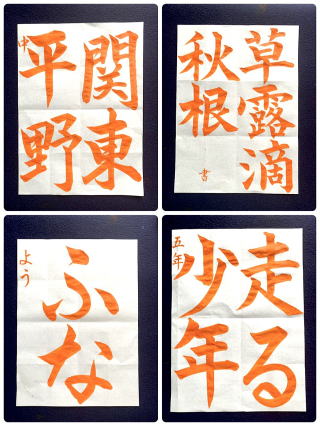 関東
平野
中
草露滴
秋根
書
ふな
よう
走る
少年
五年